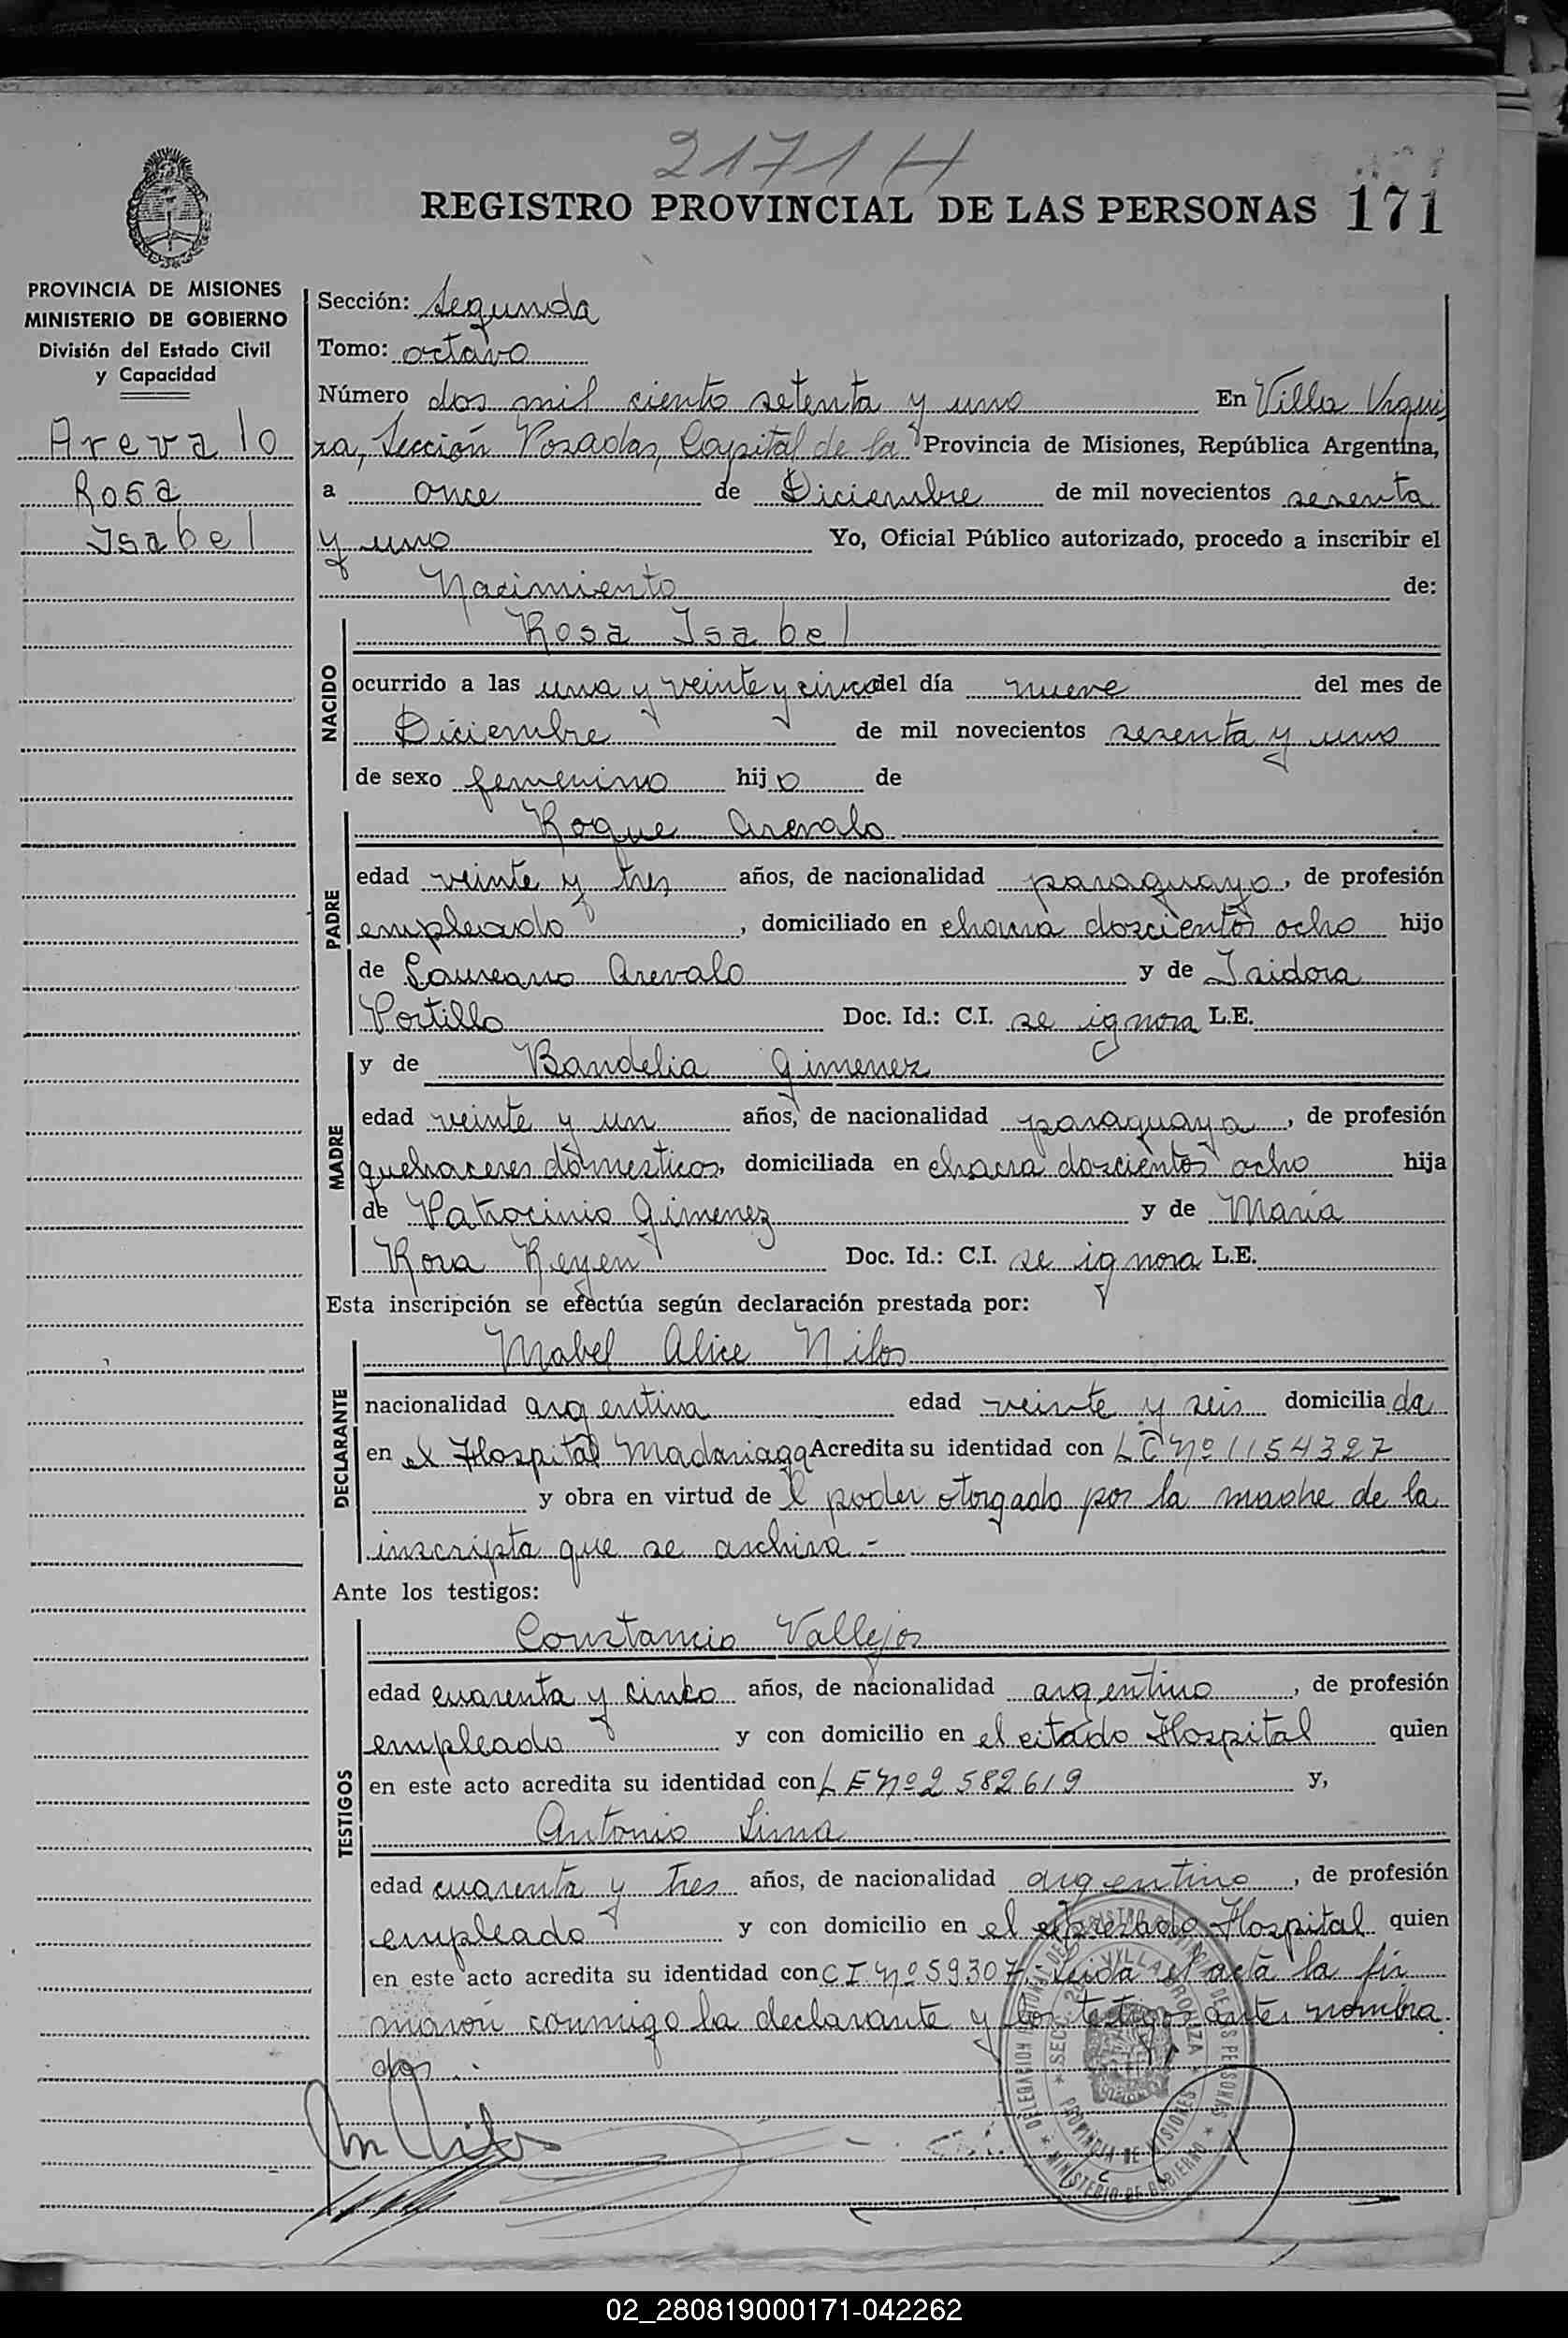 2171 H
REGISTRO PROVINCIAL DE LAS PERSONAS 171
PROVINCIA DE MISIONES
MINISTERIO DE GOBIERNO
División del Estado Civil
y Capacidad
Arevalo
Rosa
Isabel
Sección: Segunda
Tomo: octavo
Número dos mil ciento setenta y uno En Villa Urqui
za, Sección Posadas, Capital de la Provincia de Misiones, República Argentina,
a once de Diciembre de mil novecientos sesenta
y uno Yo, Oficial Público autorizado, procedo a inscribir el
Nacimiento de:
NACIDO
Rosa Isabel
ocurrido a las una y veinte y cinco del día nueve del mes de
Diciembre de mil novecientos sesenta y uno
de sexo femenino hijo de
PADRE
Roque Arevalo
edad veinte y tres años, de nacionalidad paraguayo, de profesión
empleado, domiciliado en chacra doscientos ocho hijo
de Laureano Arevalo y de Isidora
Portillo Doc. Id.: C.I. se ignora L.E.
MADRE
y de Bandelia Gimenez
edad veinte y un años, de nacionalidad paraguaya, de profesión
quehaceres domesticos, domiciliada en chacra doscientos ocho hija
de Patrocinio Gimenez y de María
Rosa Reyen Doc. Id.: C.I. se ignora L.E.
Esta inscripción se efectúa según declaración prestada por:
DECLARANTE
Mabel Alice Nilos
nacionalidad argentina edad veinte y seis domiciliada
en el Hospital Madariaga Acredita su identidad con L C Nº 1154327
y obra en virtud de l poder otorgado por la madre de la
inscripta que se archiva.-
Ante los testigos:
TESTIGOS
Constancio Vallejos
edad cuarenta y cinco años, de nacionalidad argentino, de profesión
empleado y con domicilio en el citado Hospital quien
en este acto acredita su identidad con L E Nº 2 582619 y,
Antonio Lima
edad cuarenta y tres años, de nacionalidad argentino, de profesión
empleado y con domicilio en el expresado Hospital quien
en este acto acredita su identidad con C I Nº 59307. Leida el acta la fir
maron conmigo la declarante y los testigos antes nombra
dos.
PROVINCIA DE MISIONES
MINISTERIO DE GOBIERNO
02_280819000171-042262